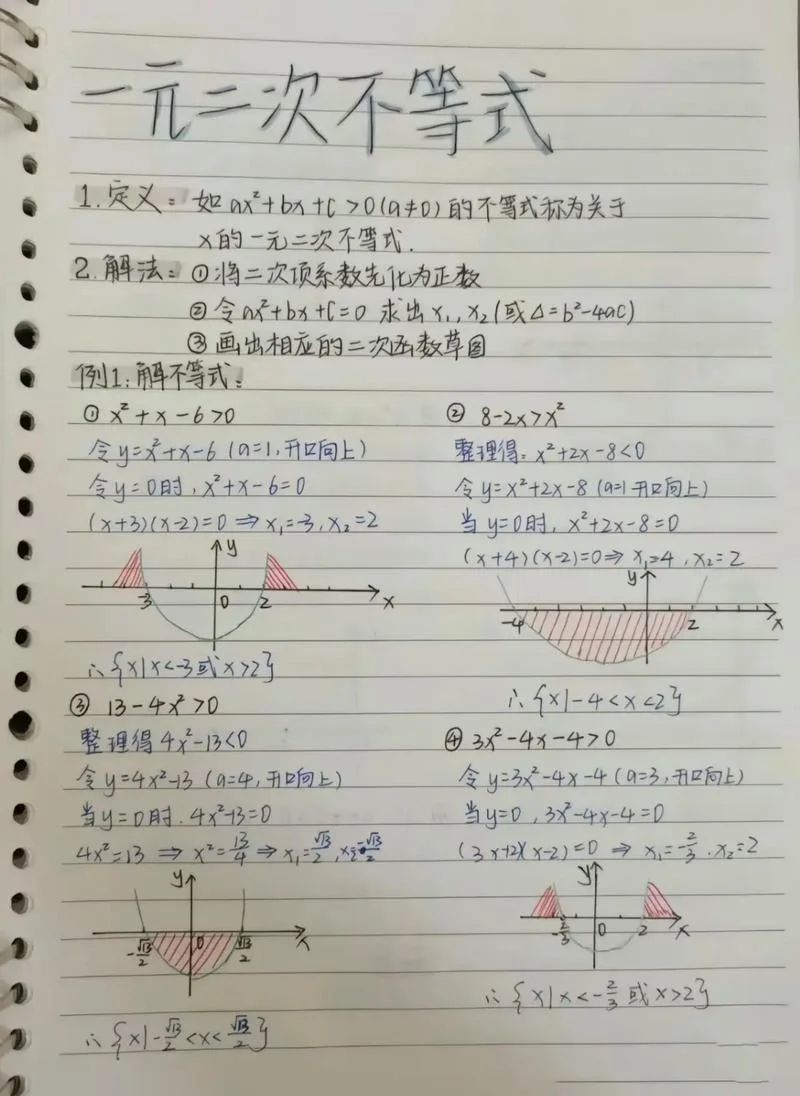 一元二次不等式
1.定义：如ax²+bx+c>0(a≠0)的不等式称为关于
x的一元二次不等式.
2.解法：①将二次项系数先化为正数
②令ax²+bx+c=0 求出x₁,x₂(或Δ=b²-4ac)
③画出相应的二次函数草图
例1:解不等式：
①x²+x-6>0
令y=x²+x-6（a=1,开口向上）
令y=0时,x²+x-6=0
(x+3)(x-2)=0⇒x₁=-3,x₂=2
y
-3 0 2 x
∴{x|x<-3或x>2}
② 8-2x>x²
整理得：x²+2x-8<0
令y=x²+2x-8（a=1开口向上）
当y=0时,x²+2x-8=0
(x+4)(x-2)=0⇒x₁=4,x₂=2
y
-4 2 x
∴{x|-4<x<2}
③ 13-4x²>0
整理得4x²-13<0
令y=4x²-13（a=4,开口向上）
当y=0时.4x²-13=0
4x²=13⇒x²=13/4⇒x₁=√13/2,x₂=-√13/2
y
-√13/2 0 √13/2 x
∴{x|-√13/2<x<√13/2}
④3x²-4x-4>0
令y=3x²-4x-4（a=3,开口向上）
当y=0,3x²-4x-4=0
(3x+2)(x-2)=0⇒x₁=-2/3.x₂=2
y
-2/3 0 2 x
∴{x|x<-2/3或x>2}